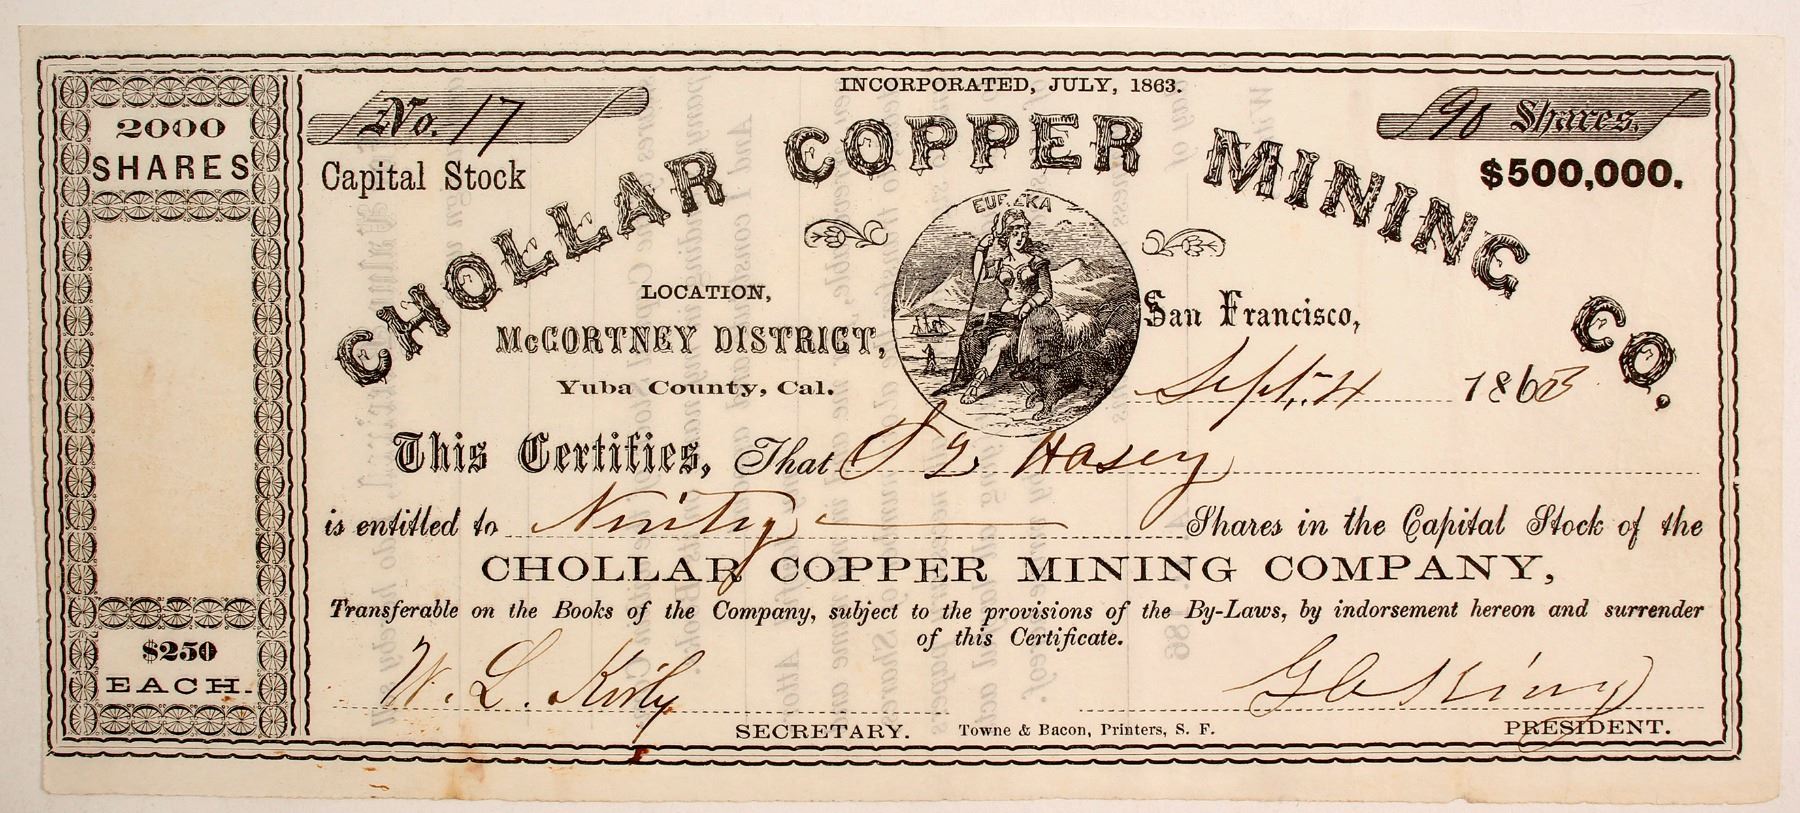 INCORPORATED, JULY, 1863.
2000
SHARES
No. 17
90 Shares.
Capital Stock
$500,000.
CHOLLAR COPPER MINING CO.
EUREKA
LOCATION,
McCORTNEY DISTRICT,
Yuba County, Cal.
San Francisco,
Sept. 4 1863
This Certifies, That Hasey
is entitled to Ninty Shares in the Capital Stock of the
CHOLLAR COPPER MINING COMPANY,
Transferable on the Books of the Company, subject to the provisions of the By-Laws, by indorsement hereon and surrender
of this Certificate.
$250
EACH.
W. L. Kirby
King
SECRETARY. Towne & Bacon, Printers, S. F. PRESIDENT.